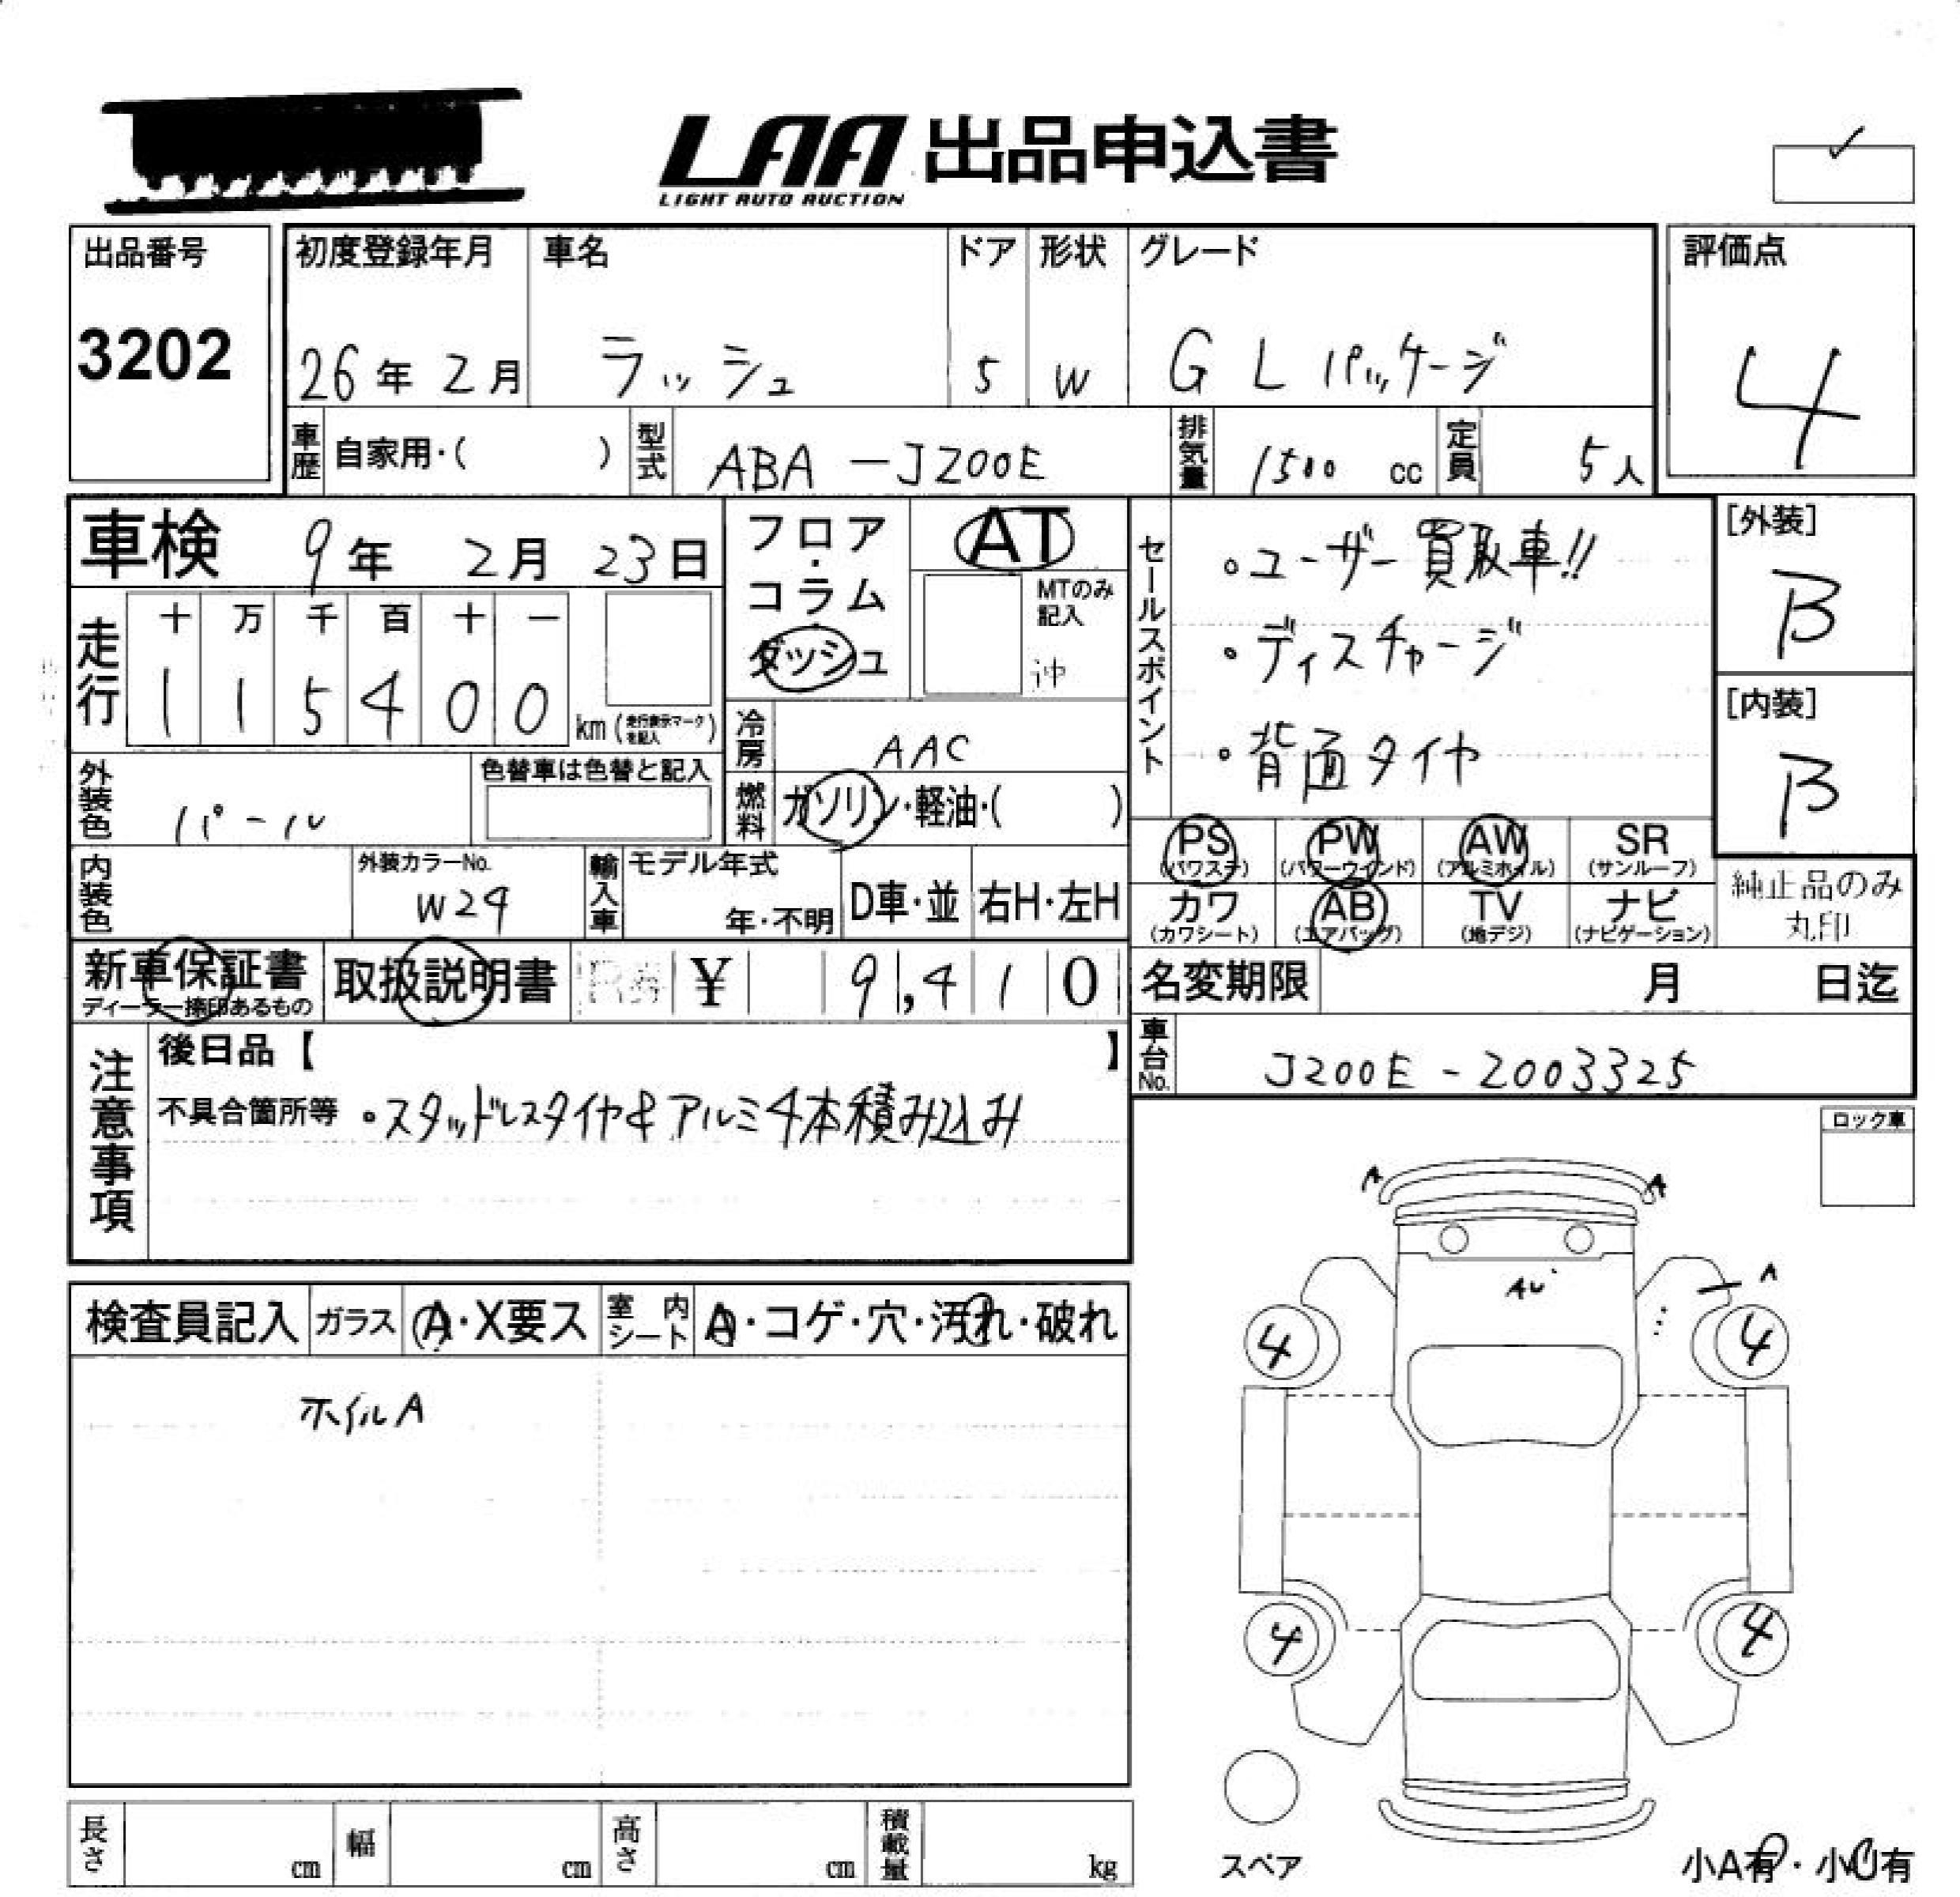 LAA 出品申込書
LIGHT AUTO AUCTION
出品番号
3202
初度登録年月
26年 2月
車名
ラッシュ
ドア
5
形状
W
グレード
G Lパッケージ
評価点
4
車歴 自家用・( )
型式 ABA-J200E
排気量 1500 cc
定員 5人
車検 9年 2月 23日
フロア・コラム・ダッシュ
AT
MTのみ記入
沖
走行
十 万 千 百 十 一
1 1 5 4 0 0 km (走行表示マークを記入)
冷房 AAC
燃料 ガソリン・軽油・( )
外装色 パール
色替車は色替と記入
内装色
外装カラーNo.
W24
輸入車
モデル年式
年・不明
D車・並
右H・左H
セールスポイント
。ユーザー買取車!!
。ディスチャージ
。背面タイヤ
[外装]
B
[内装]
B
PS (パワステ)
PW (パワーウインド)
AW (アルミホイル)
SR (サンルーフ)
カワ (カワシート)
AB (エアバッグ)
TV (地デジ)
ナビ (ナビゲーション)
純正品のみ
丸印
新車保証書
ディーラー捺印あるもの
取扱説明書
¥ 9,410
名変期限 月 日迄
車台No. J200E-2003325
注意事項
後日品【 】
不具合箇所等 。スタッドレスタイヤ&アルミ4本積み込み
ロック車
検査員記入
ガラス A・X要ス
室内シート A・コゲ・穴・汚れ・破れ
ホイルA
A
A
AU
A
4
4
4
4
スペア
小A有・小U有
長さ cm
幅 cm
高さ cm
積載量 kg